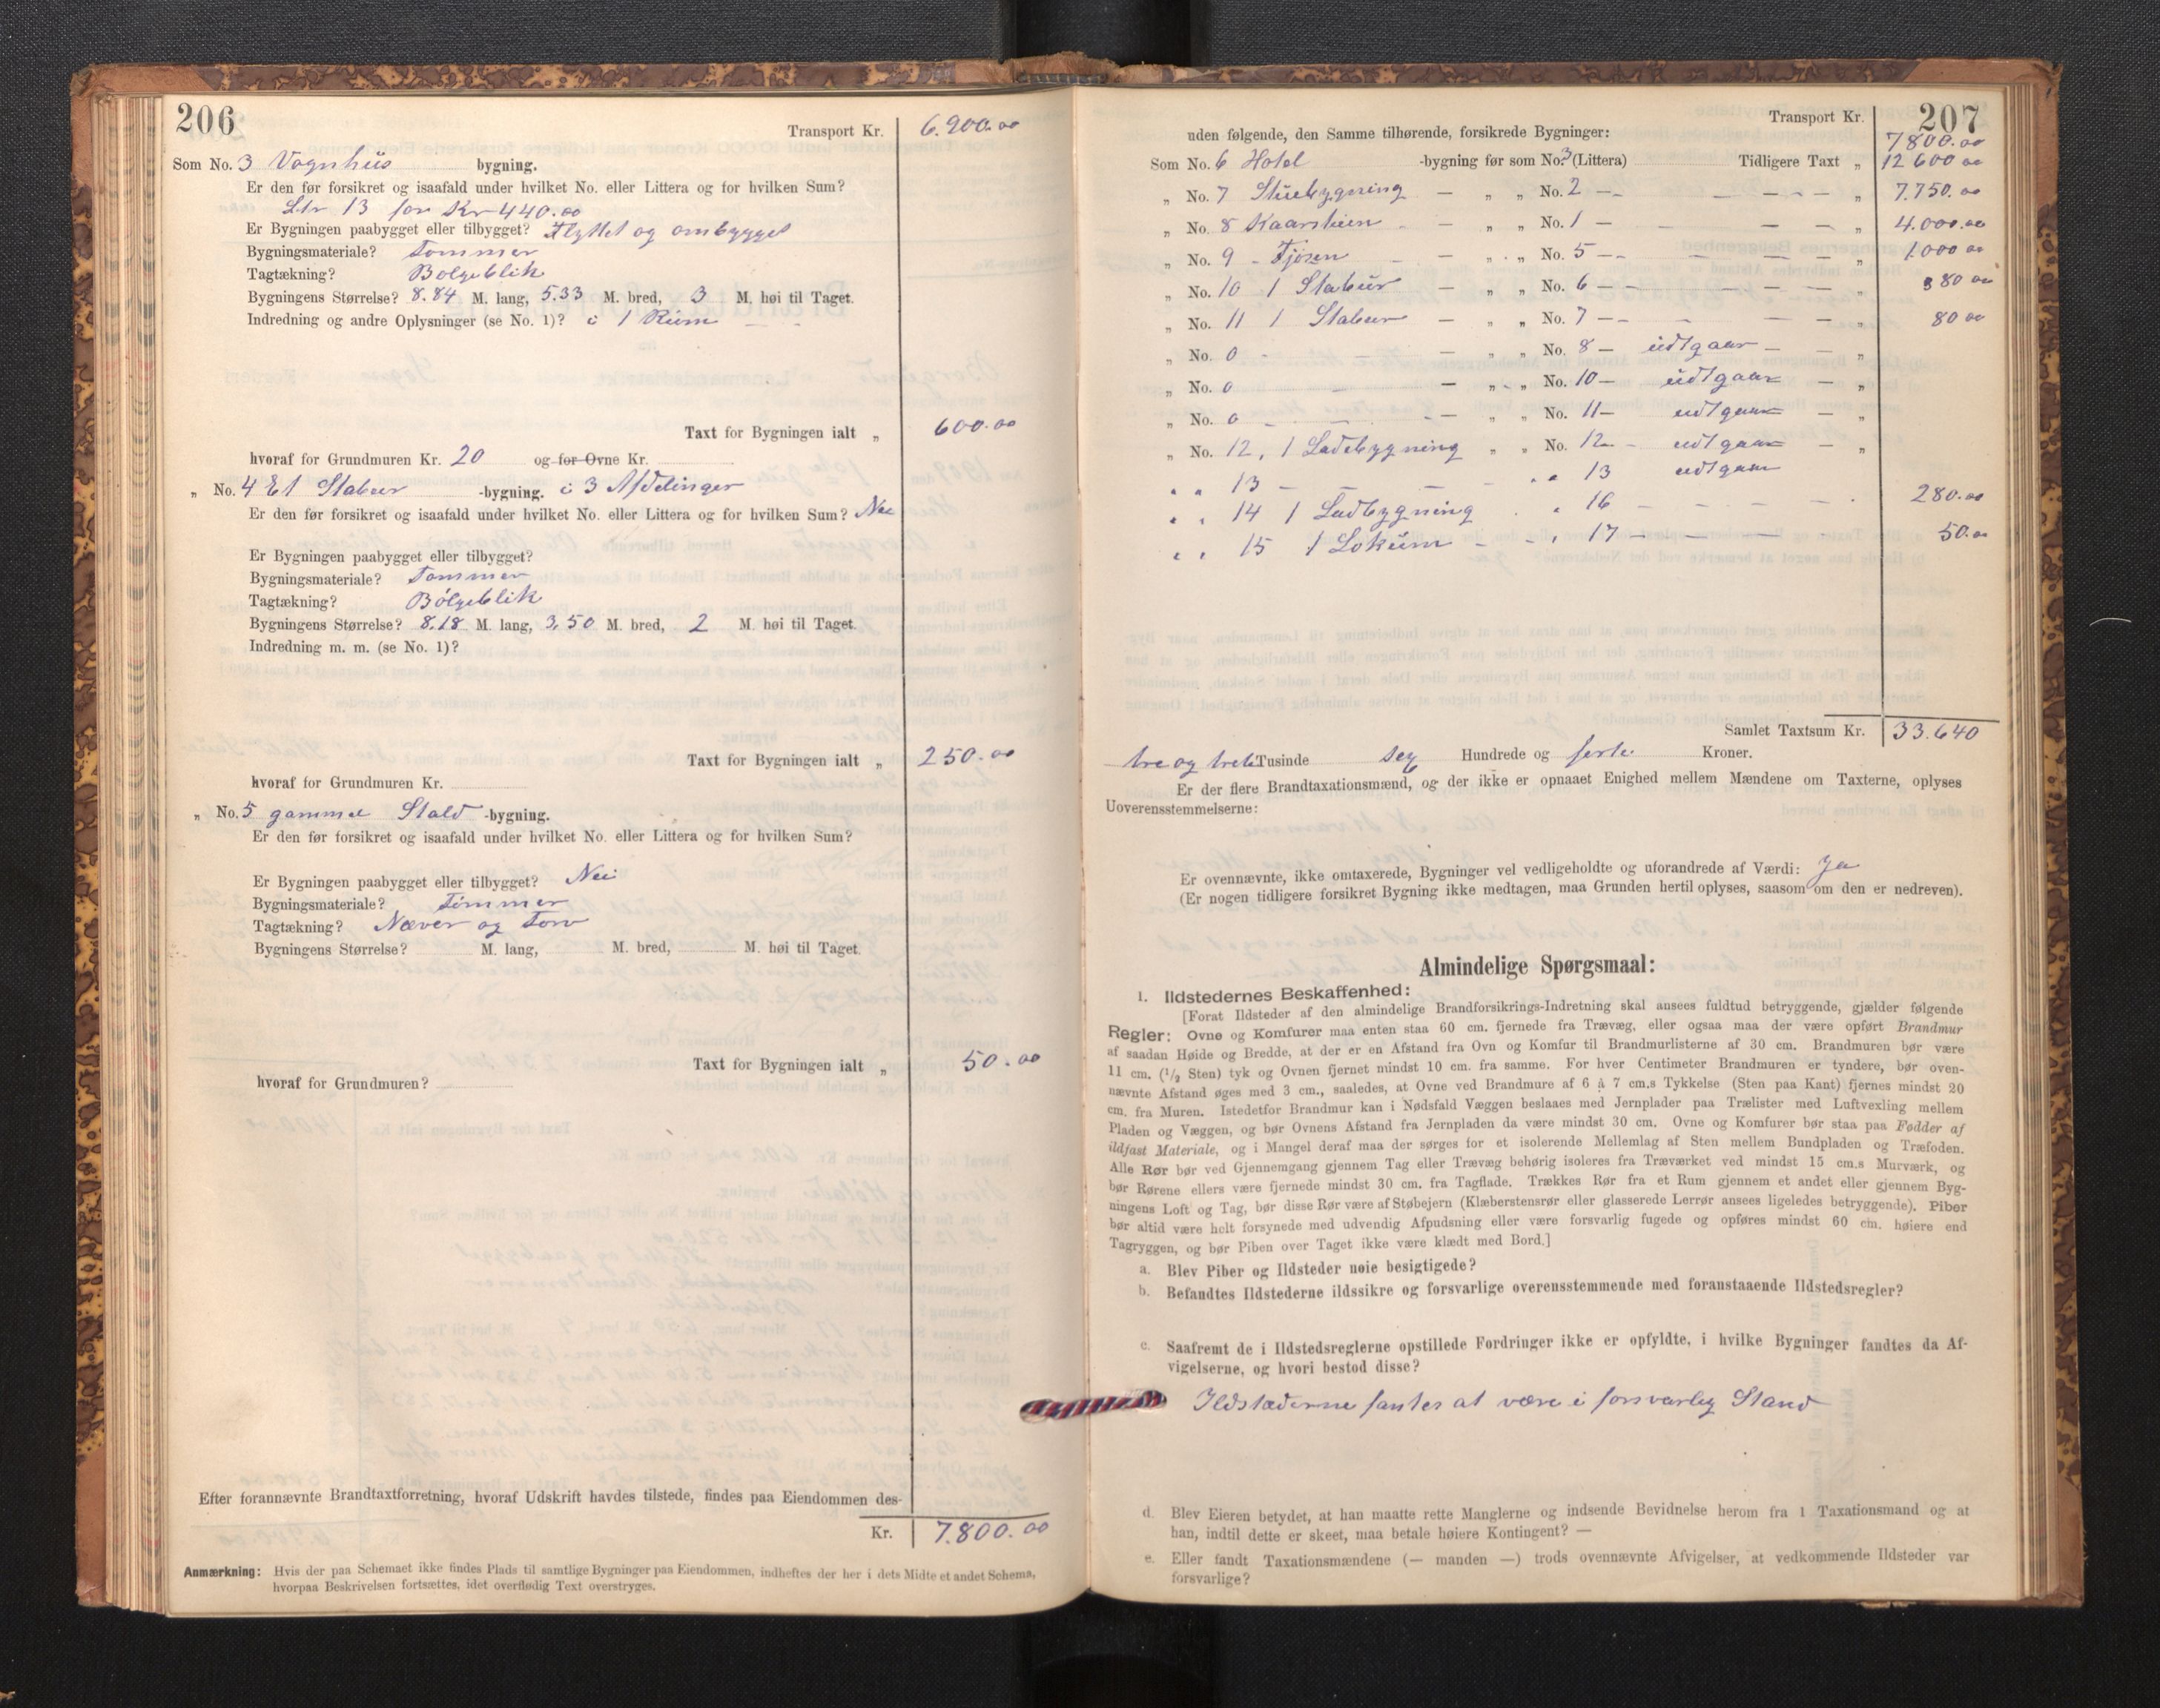 206
Transport Kr. 6.900.00
Som No. 3 Vognhus bygning.
Er den før forsikret og isaafald under hvilket No. eller Littera og for hvilken Sum?
Ltr 13 for Kr 440.00
Er Bygningen paabygget eller tilbygget? Flyttet og ombygget
Bygningsmateriale? Tømmer
Tagtækning? Bølgeblik
Bygningens Størrelse? 8.84 M. lang, 5.33 M. bred, 3 M. høi til Taget.
Indredning og andre Oplysninger (se No. 1)? i 1 Rum
Taxt for Bygningen ialt „ 600.00
hvoraf for Grundmuren Kr. 20 og for Ovne Kr.
„ No. 4 Et Stabur -bygning. i 3 Afdelinger
Er den før forsikret og isaafald under hvilket No. eller Littera og for hvilken Sum? Nei
Er Bygningen paabygget eller tilbygget?
Bygningsmateriale? Tømmer
Tagtækning? Bølgeblik
Bygningens Størrelse? 8.18 M. lang, 3,50 M. bred, 2 M. høi til Taget.
Indredning m. m. (se No. 1)?
Taxt for Bygningen ialt „ 250.00
hvoraf for Grundmuren Kr.
„ No. 5 gammel Stald -bygning.
Er den før forsikret og isaafald under hvilket No. eller Littera og for hvilken Sum?
Er Bygningen paabygget eller tilbygget? Nei
Bygningsmateriale? Tømmer
Tagtækning? Næver og Torv
Bygningens Størrelse? M. lang, M. bred, M. høi til Taget.
Taxt for Bygningen ialt „ 50.00
hvoraf for Grundmuren?
Efter forannævnte Brandtaxtforretning, hvoraf Udskrift havdes tilstede, findes paa Eiendommen des-
Kr. 7.800.00
Anmærkning: Hvis der paa Schemaet ikke findes Plads til samtlige Bygninger paa Eiendommen, indheftes der her i dets Midte et andet Schema,
hvorpaa Beskrivelsen fortsættes, idet overflødig Text overstryges.
207
Transport Kr. 7800.00
uden følgende, den Samme tilhørende, forsikrede Bygninger:
Som No. 6 Hotel -bygning før som No. 3 (Littera) Tidligere Taxt „ 12 600 00
„ No. 7 Stuebygning — „ „ No. 2 — — — „ 7.750.00
„ No. 8 — „ „ No. 1 — — — „ 4.000.00
„ No. 9 - Fjøsen — „ „ No. 5 — — — „ 1.000 00
„ No. 10 1 Stabur — „ „ No. 6 — — — „ 80 00
„ No. 11 1 Stabur — „ „ No. 7 — — — „ 80 00
„ No. 0 - — „ „ No. 8 — udtgaar — — „
„ No. 0 — „ „ No. 10 — udtgaar — „
„ No. 0 — „ „ No. 11 — udtgaar — „
„ No. 12, 1 Ladebygning „ „ No. 12 - udtgaar — „
„ „ 13 — — — „ „ 13 udtgaar
„ „ 14 1 Ladbygning „ 16 — — — 280.00
„ „ 15 1 Lokum - - „ 17 — — — 50.00
Samlet Taxtsum Kr. 33.640
tre og treti Tusinde sex Hundrede og førti Kroner.
Er der flere Brandtaxationsmænd, og der ikke er opnaaet Enighed mellem Mændene om Taxterne, oplyses
Uoverensstemmelserne:
Er ovennævnte, ikke omtaxerede, Bygninger vel vedligeholdte og uforandrede af Værdi: Ja
(Er nogen tidligere forsikret Bygning ikke medtagen, maa Grunden hertil oplyses, saasom om den er nedreven).
Almindelige Spørgsmaal:
1. Ildstedernes Beskaffenhed:
[Forat Ildsteder af den almindelige Brandforsikrings-Indretning skal ansees fuldtud betryggende, gjælder følgende
Regler: Ovne og Komfurer maa enten staa 60 cm. fjernede fra Trævæg, eller ogsaa maa der være opført Brandmur
af saadan Høide og Bredde, at der er en Afstand fra Ovn og Komfur til Brandmurlisterne af 30 cm. Brandmuren bør være
11 cm. (1/2 Sten) tyk og Ovnen fjernet mindst 10 cm. fra samme. For hver Centimeter Brandmuren er tyndere, bør oven-
nævnte Afstand øges med 3 cm., saaledes, at Ovne ved Brandmure af 6 à 7 cm.s Tykkelse (Sten paa Kant) fjernes mindst 20
cm. fra Muren. Istedetfor Brandmur kan i Nødsfald Væggen beslaaes med Jernplader paa Trælister med Luftvexling mellem
Pladen og Væggen, og bør Ovnens Afstand fra Jernpladen da være mindst 30 cm. Ovne og Komfurer bør staa paa Fødder af
ildfast Materiale, og i Mangel deraf maa der sørges for et isolerende Mellemlag af Sten mellem Bundpladen og Træfoden.
Alle Rør bør ved Gjennemgang gjennem Tag eller Trævæg behørig isoleres fra Træværket ved mindst 15 cm.s Murværk, og
bør Rørene ellers være fjernede mindst 30 cm. fra Tagflade. Trækkes Rør fra et Rum gjennem et andet eller gjennem Byg-
ningens Loft og Tag, bør disse Rør være af Støbejern (Klæberstensrør eller glasserede Lerrør ansees ligeledes betryggende). Piber
bør altid være helt forsynede med udvendig Afpudsning eller være forsvarlig fugede og opføres mindst 60 cm. høiere end
Tagryggen, og bør Piben over Taget ikke være klædt med Bord.]
a. Blev Piber og Ildsteder nøie besigtigede?
b. Befandtes Ildstederne ildssikre og forsvarlige overensstemmende med foranstaaende Ildstedsregler?
c. Saafremt de i Ildstedsreglerne opstillede Fordringer ikke er opfyldte, i hvilke Bygninger fandtes da Af-
vigelserne, og hvori bestod disse?
Ildstæderne fantes at være i forsvarlig Stand
d. Blev Eieren betydet, at han maatte rette Manglerne og indsende Bevidnelse herom fra 1 Taxationsmand og at
han, indtil dette er skeet, maa betale høiere Kontingent? —
e. Eller fandt Taxationsmændene (— manden —) trods ovennævnte Afvigelser, at vedkommende Ildsteder var
forsvarlige?